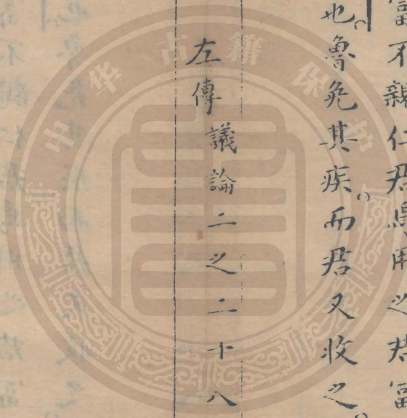 富不親仁君焉用之君富
也魯免其疾而君又收之
左傳議論二之二十八
中华古籍保护